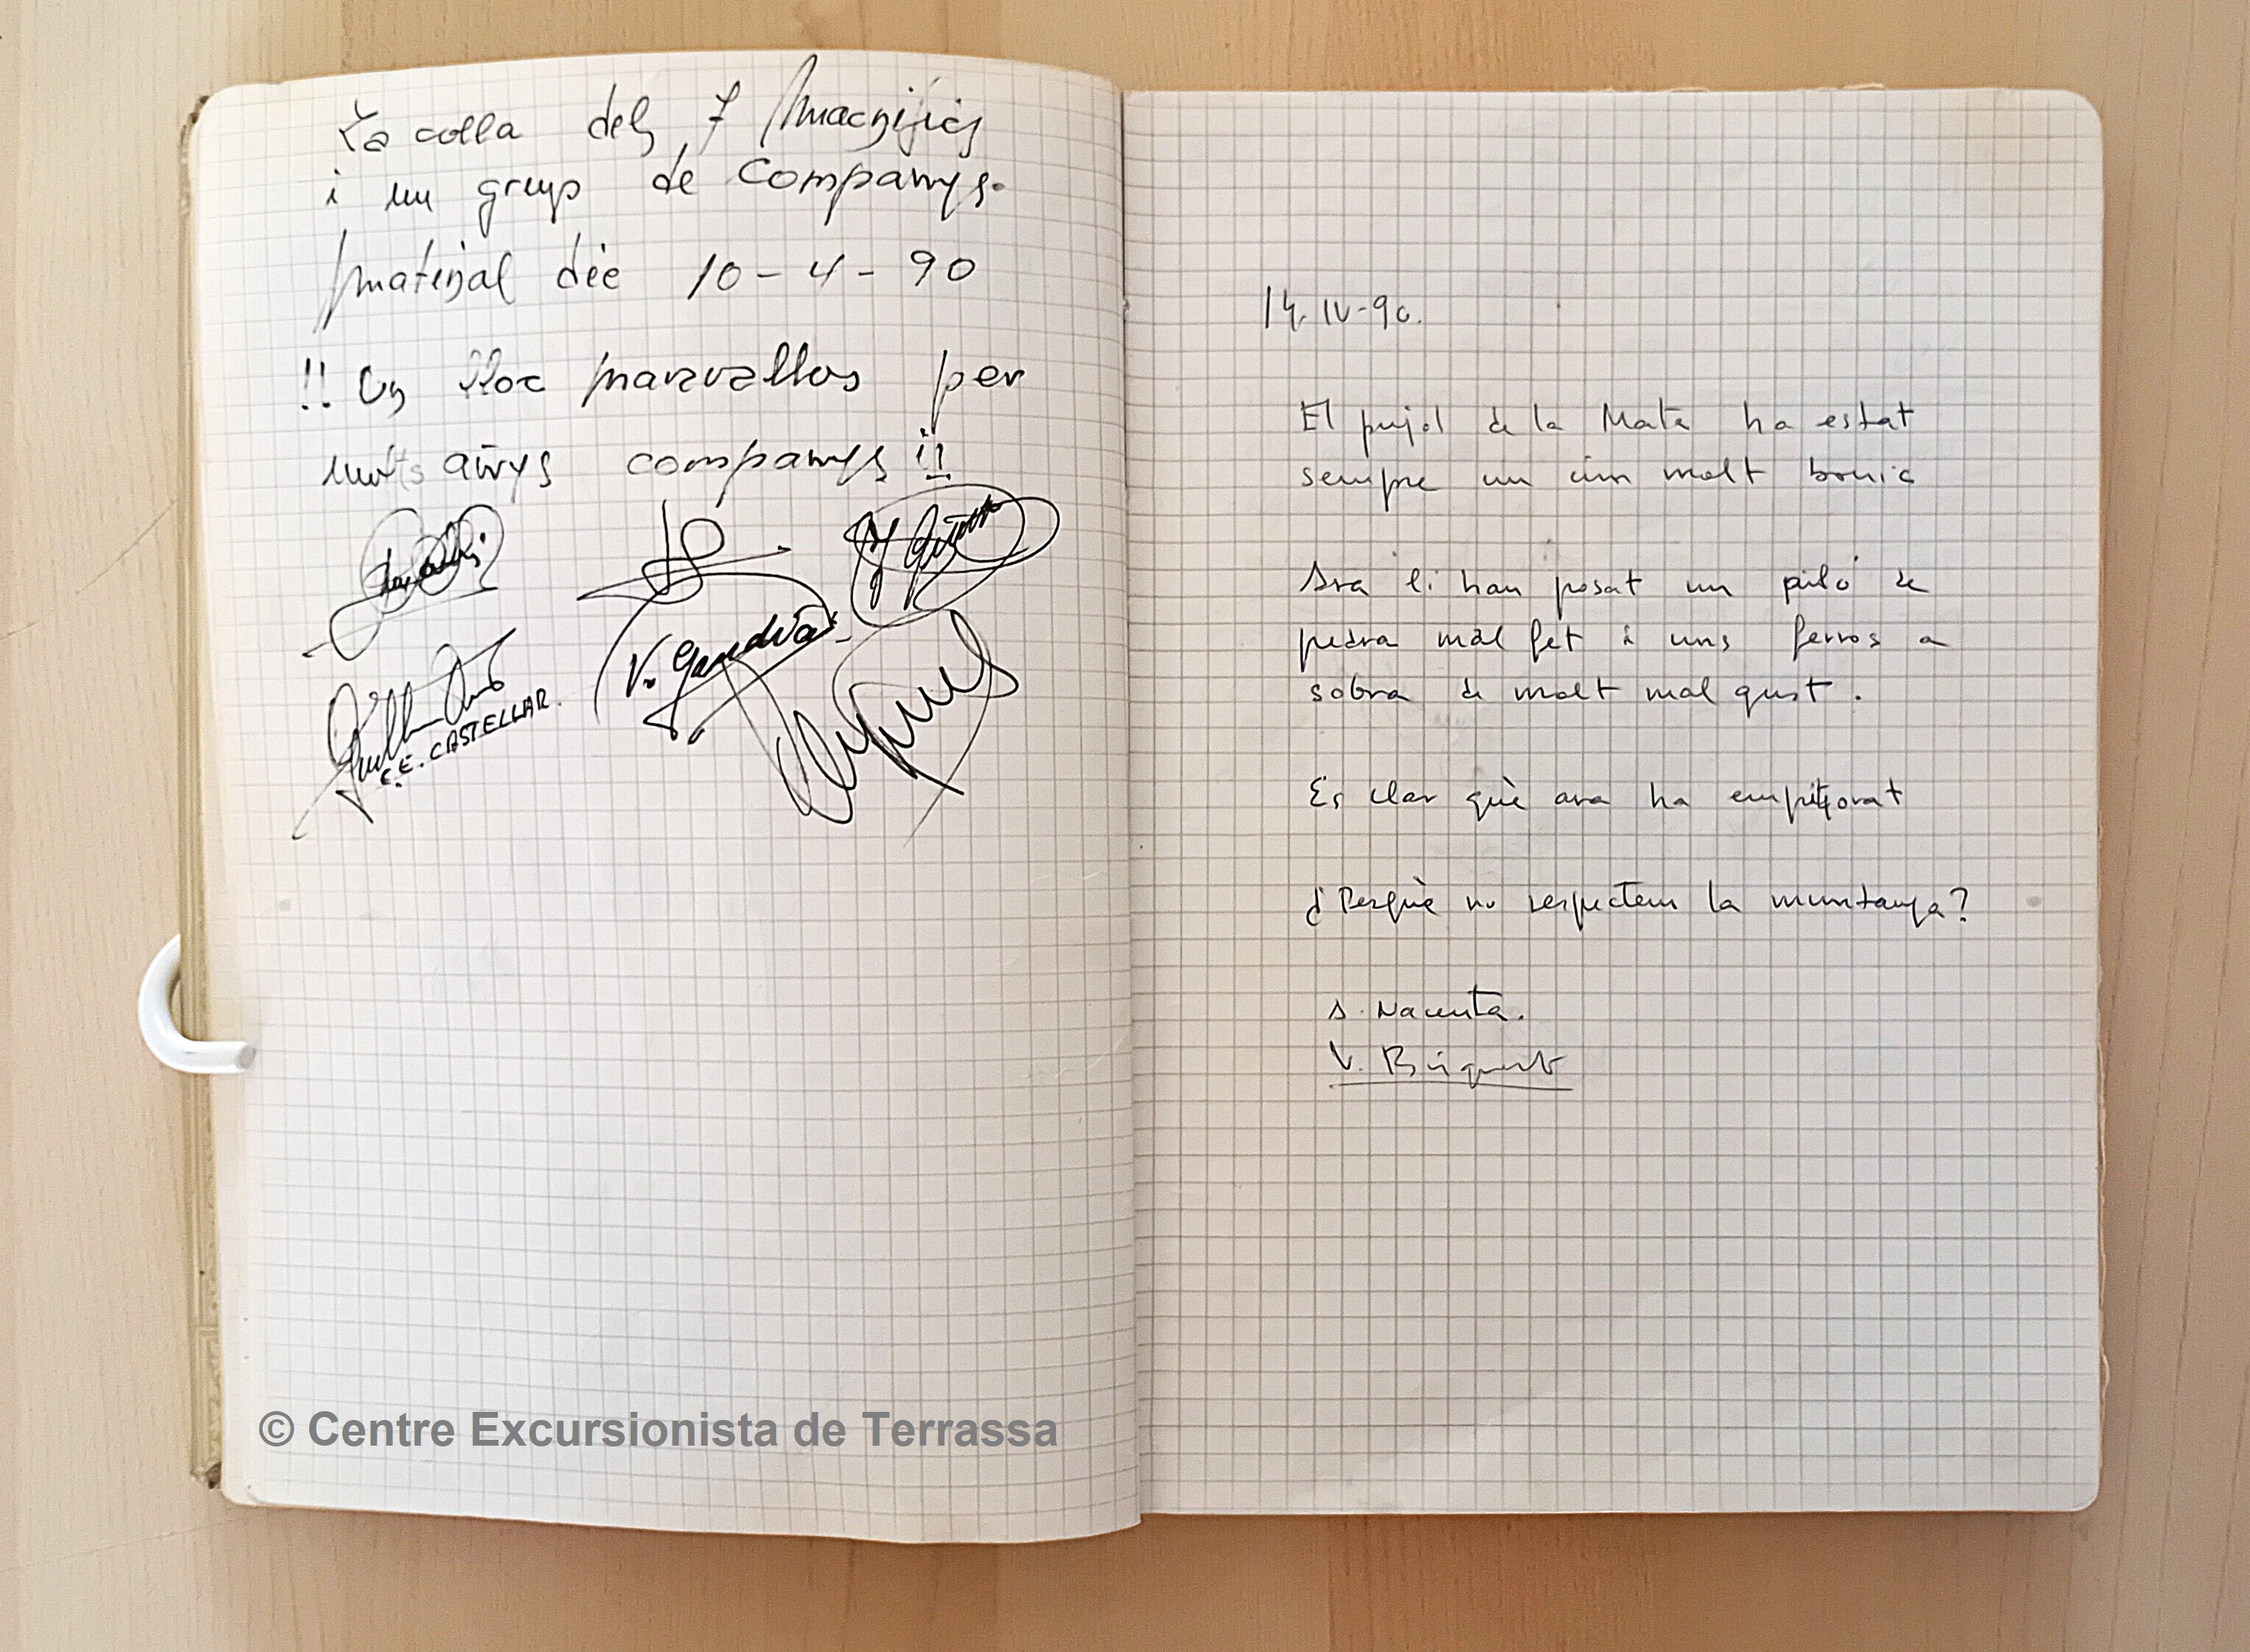 La colla dels 7 Magnifics
i un grup de Companys.
Material die 10-4-90
!! Un lloc maravellos per
molts anys companys !!
V. Gandia
C.E. CASTELLAR.
14-IV-90.
El pujol de la Mata ha estat
sempre un cim molt bonic
Ara li han posat un piló de
pedra mal fet i uns ferros a
sobra de molt mal gust.
Es clar què ara ha empitjorat
¿Perquè no respectem la muntanya?
S. Nacenta.
V.
© Centre Excursionista de Terrassa